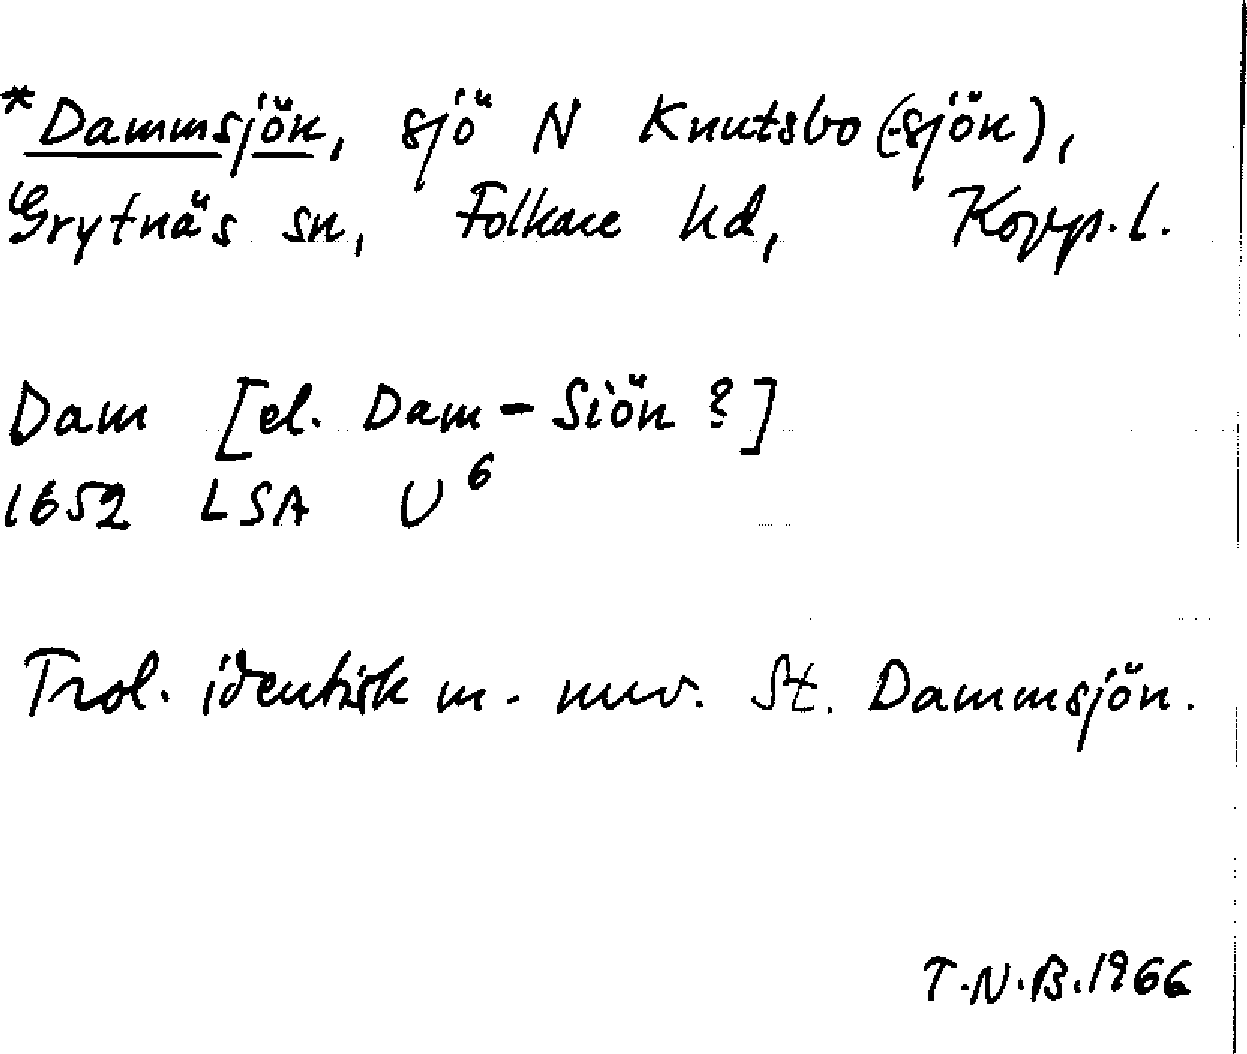 *Dammsjön, sjö N Knutsbo(-sjön),
Grytnäs sn, Folkare hd, Kopp. l.
Dam [el. Dam-Siön?]
1652 LSA U⁶
Trol. identisk m. nuv. St. Dammsjön.
T.N.B. 1966